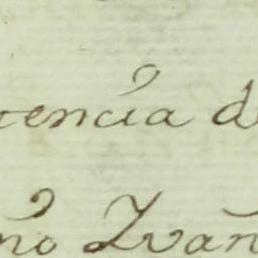 tencia de
no Ivan